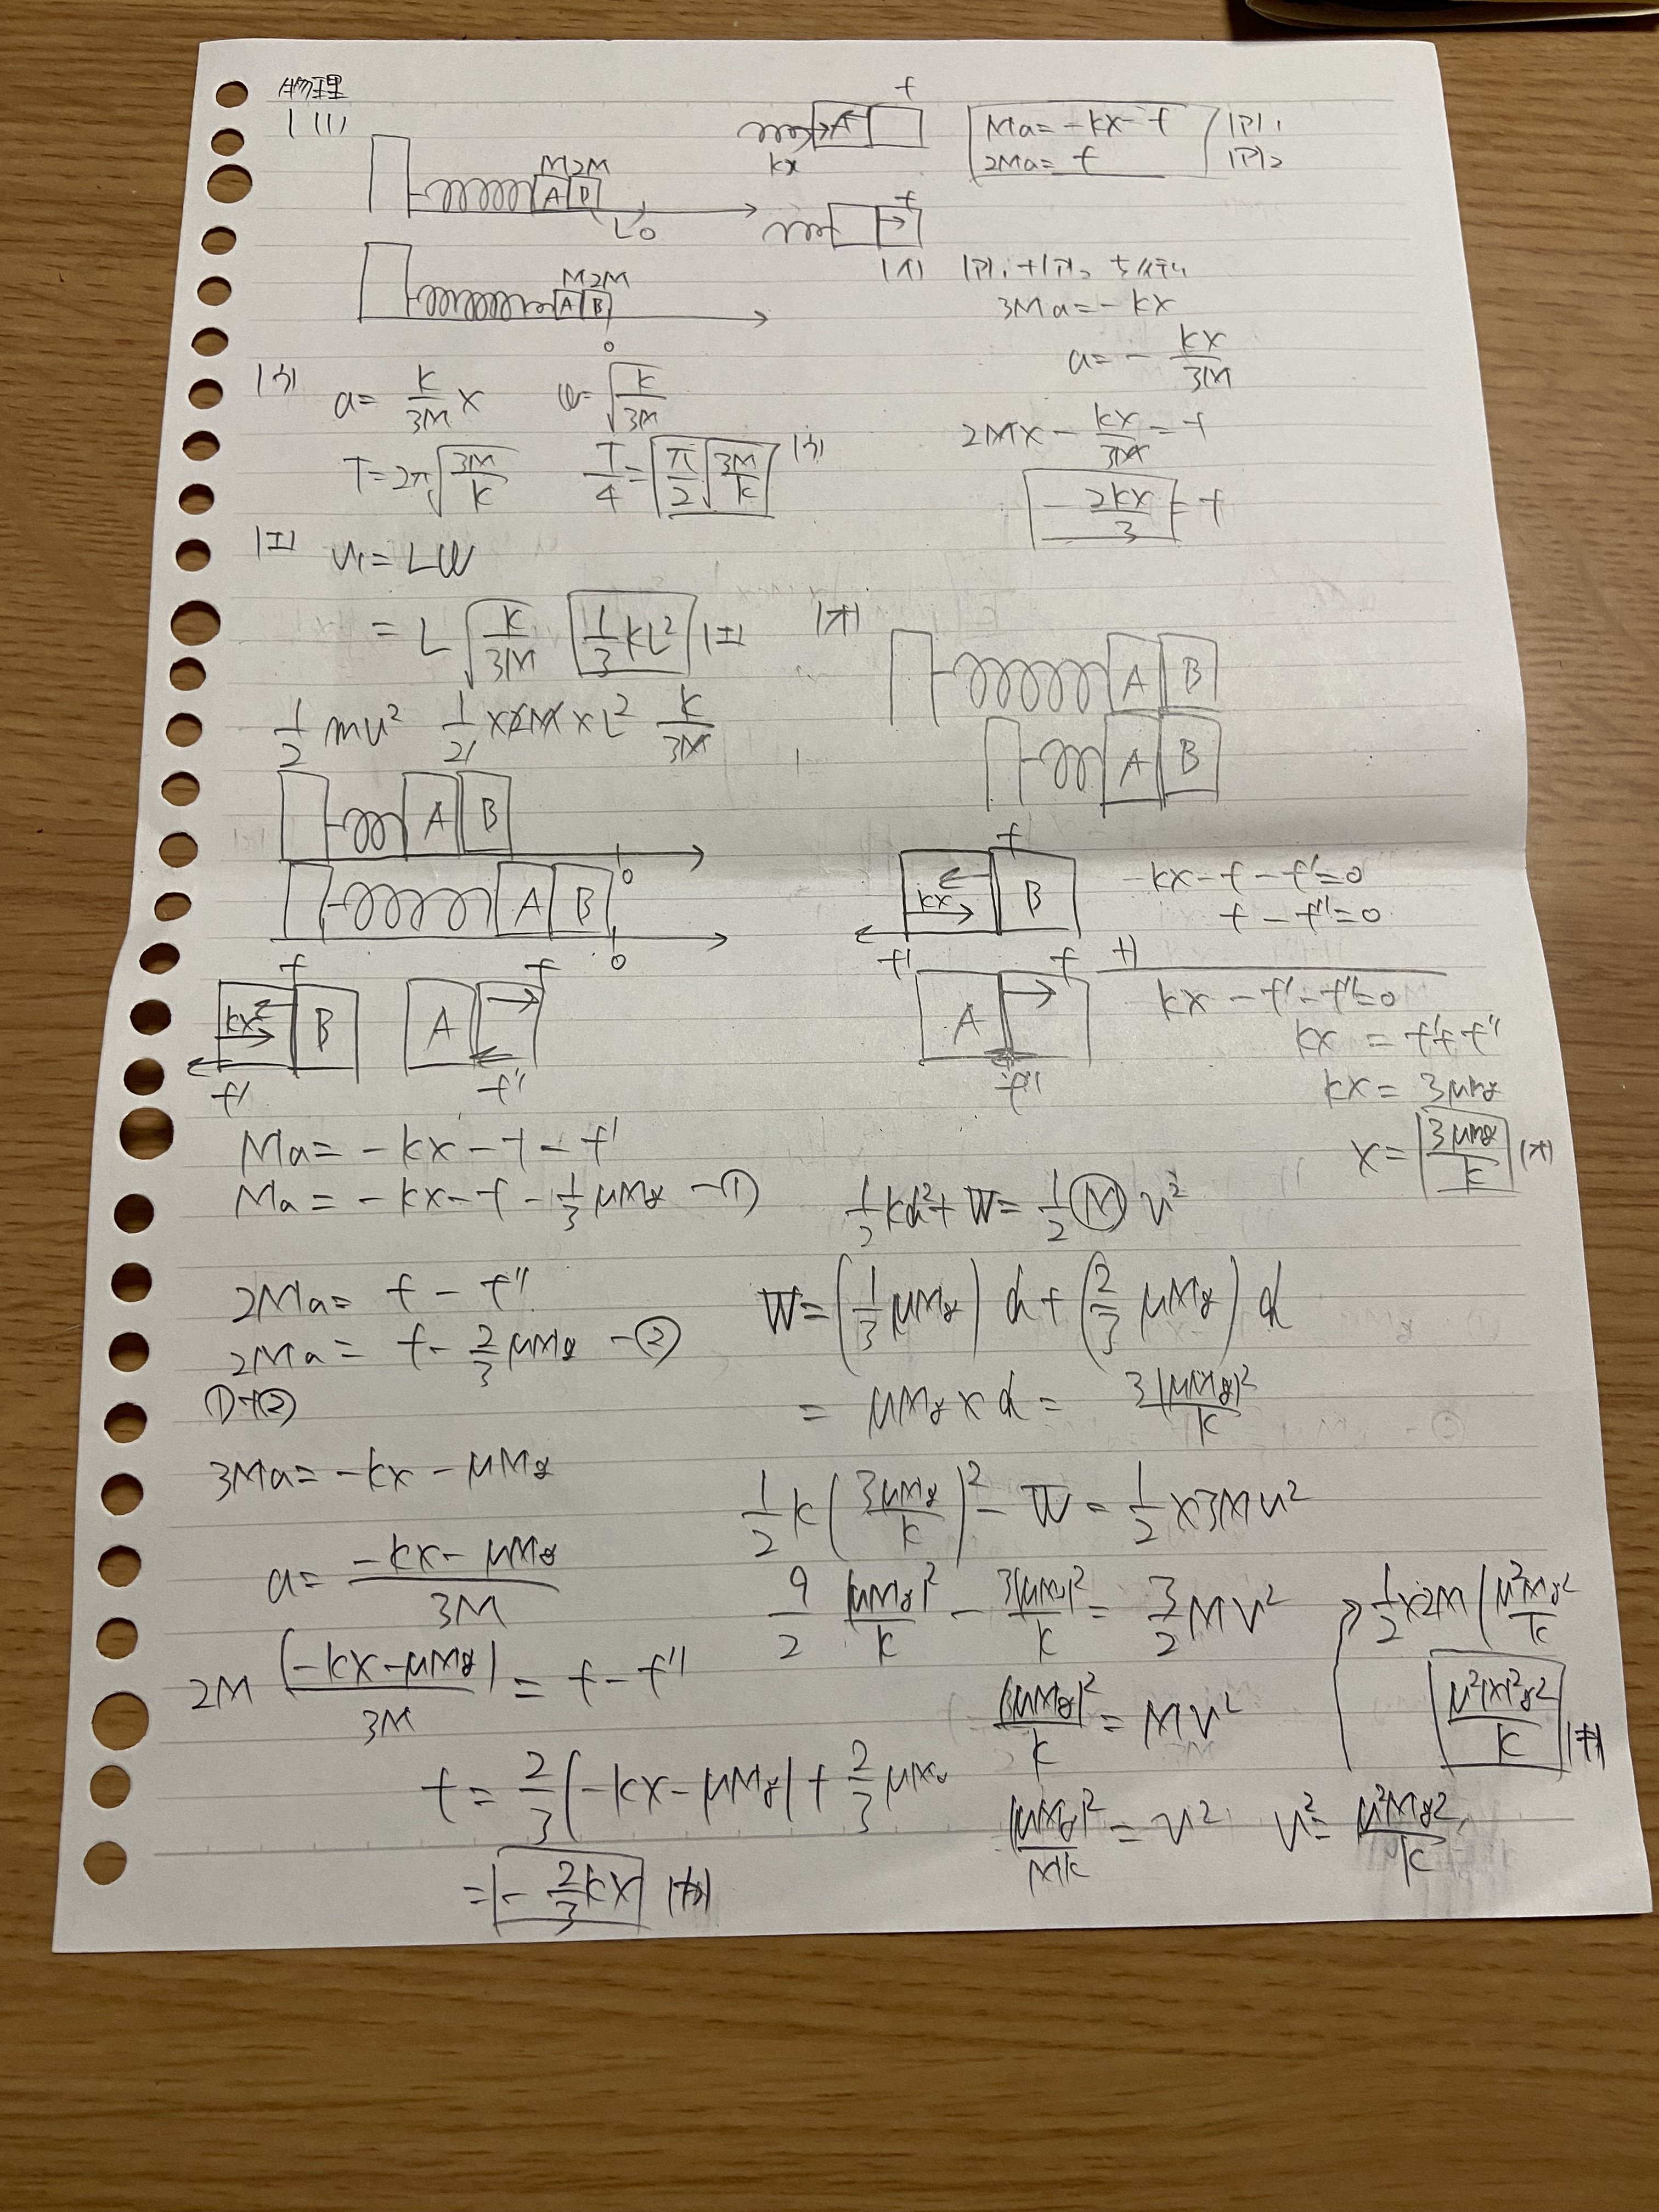 物理
1 (1)
M 2M
A B
L 0
M 2M
A B
0
f
A
kx
Ma = -kx - f (ア)1
2Ma = f (ア)2
f
(イ) (ア)1 + (ア)2 より
3Ma = -kx
a = - kx/3M
2M × - kx/3M = f
- 2kx/3 = f
(ウ) a = k/3M x ω = √(k/3M)
T = 2π√(3M/k) T/4 = π/2 √(3M/k) (ウ)
(エ) v1 = Lω
= L √(k/3M) 1/3 kL² (エ)
1/2 mv² 1/2 × 2M × L² k/3M
A B
0
A B
0
f
kx B
f'
f
A
f''
Ma = -kx - f - f'
Ma = -kx - f - 1/3 μMg -①
2Ma = f - f''
2Ma = f - 2/3 μMg -②
①+②
3Ma = -kx - μMg
a = (-kx - μMg)/3M
2M (-kx - μMg)/3M = f - f''
f = 2/3 (-kx - μMg) + 2/3 μMg
= - 2/3 kx (カ)
(オ)
A B
A B
f
kx B
f'
f
A
f''
-kx - f - f' = 0
f - f'' = 0
+)
kx - f' - f'' = 0
kx = f' + f''
kx = 3μMg
x = 3μMg/k (オ)
1/2 kd² + W = 1/2 M v²
W = (1/3 μMg) d + (2/3 μMg) d
= μMg × d = 3(μMg)²/k
1/2 k (3μMg/k)² - W = 1/2 × 3Mv²
9/2 (μMg)²/k - 3(μMg)²/k = 3/2 Mv²
(μMg)²/k = Mv²
(μMg)²/Mk = v² v² = μ²Mg²/k
1/2 × 2M (μ²Mg²/k
μ²M²g²/k (キ)